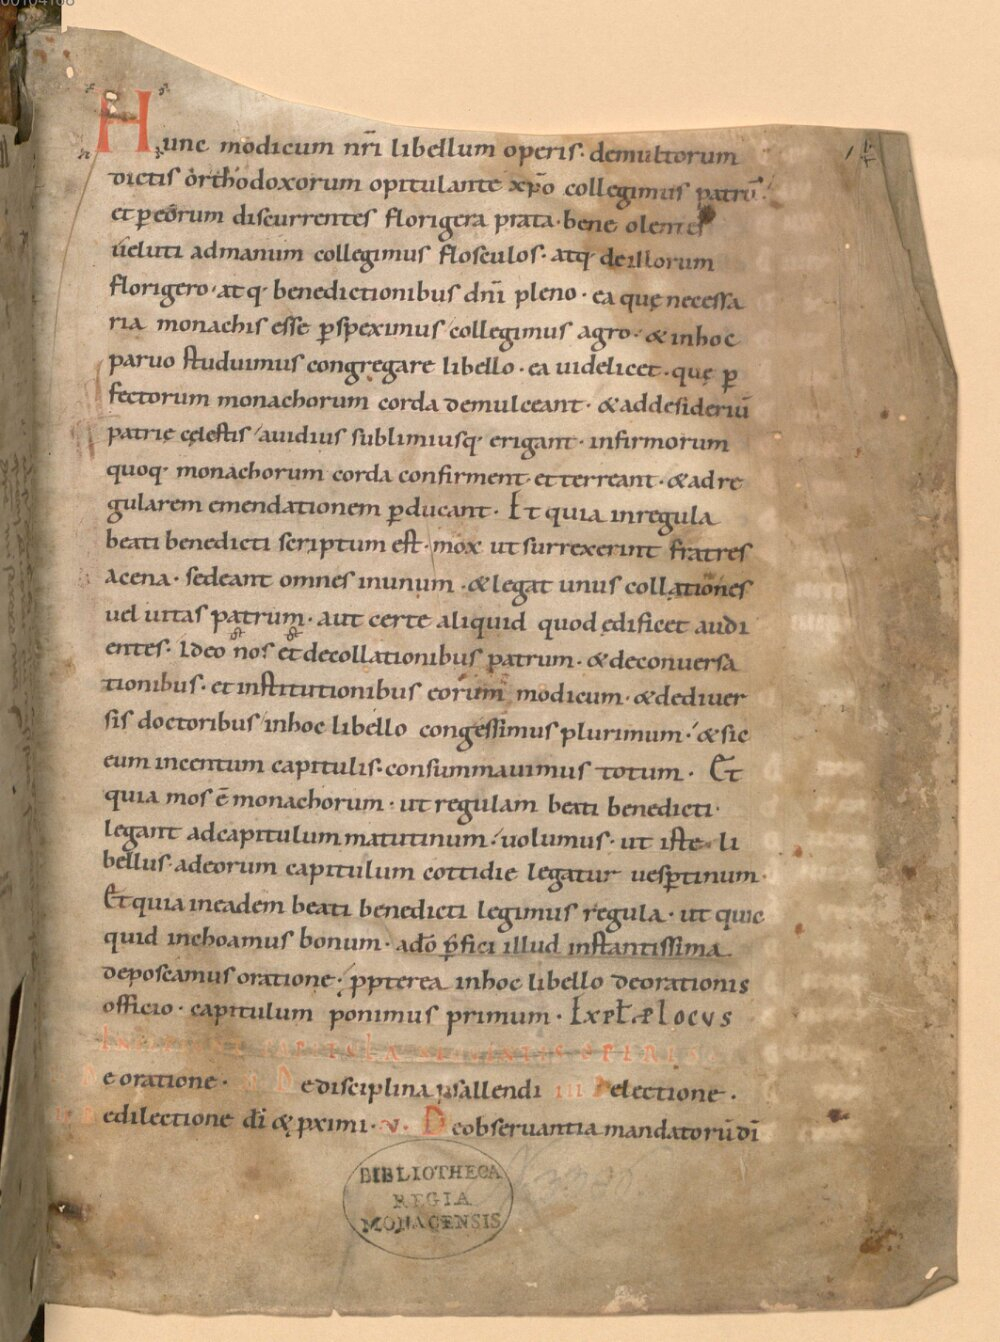 Hunc modicum nr̄i libellum operis· demultorum
dictis orthodoxorum opitulante xp̄o collegimus patrū·
et p̱eorum discurrentes florigera prata· bene olentes
ueluti admanum collegimus flosculos· atq· deillorum
florigero· atq· benedictionibus dn̄i pleno· ea quę necessa
ria monachis esse p̱speximus collegimus agro· & inhoc
paruo studuimus congregare libello· ea uidelicet· quę p̱
fectorum monachorum corda demulceant· & addesideriū
patrię cęlestis auidius sublimiusq· erigant· infirmorum
quoq· monachorum corda confirment· et terreant· & ad re
gularem emendationem p̱ducant· Et quia inregula
beati benedicti scriptum est· mox ut surrexerint fratres
acena· sedeant omnes inunum· & legat unus collationes
uel uitas patrum· aut certe aliquid quod ędificet audi
entes· Ideo nos et decollationibus patrum· & deconuersa
tionibus· et institutionibus eorum modicum· & dediuer
sis doctoribus inhoc libello congessimus plurimum· & sic
eum incentum capitulis· consummauimus totum· Et
quia mos ē monachorum· ut regulam beati benedicti·
legant adcapitulum matutinum· uolumus· ut iste li
bellus· adeorum capitulum cottidie legatur uesp̱tinum·
Et quia ineadem beati benedicti legimus regula· ut quic
quid inchoamus bonum· adō p̱fici illud instantissima
deposcamus oratione· ꝓpterea inhoc libello deorationis
officio· capitulum ponimus primum· Explꝫ Locus
INCIPIUNT CAPITULA SEQUENTIS OPERIS
De oratione· II De disciplina psallendi III De lectione·
De dilectione dī & pximi· v. De obseruantia mandatorū dī
BIBLIOTHECA
REGIA
MONACENSIS